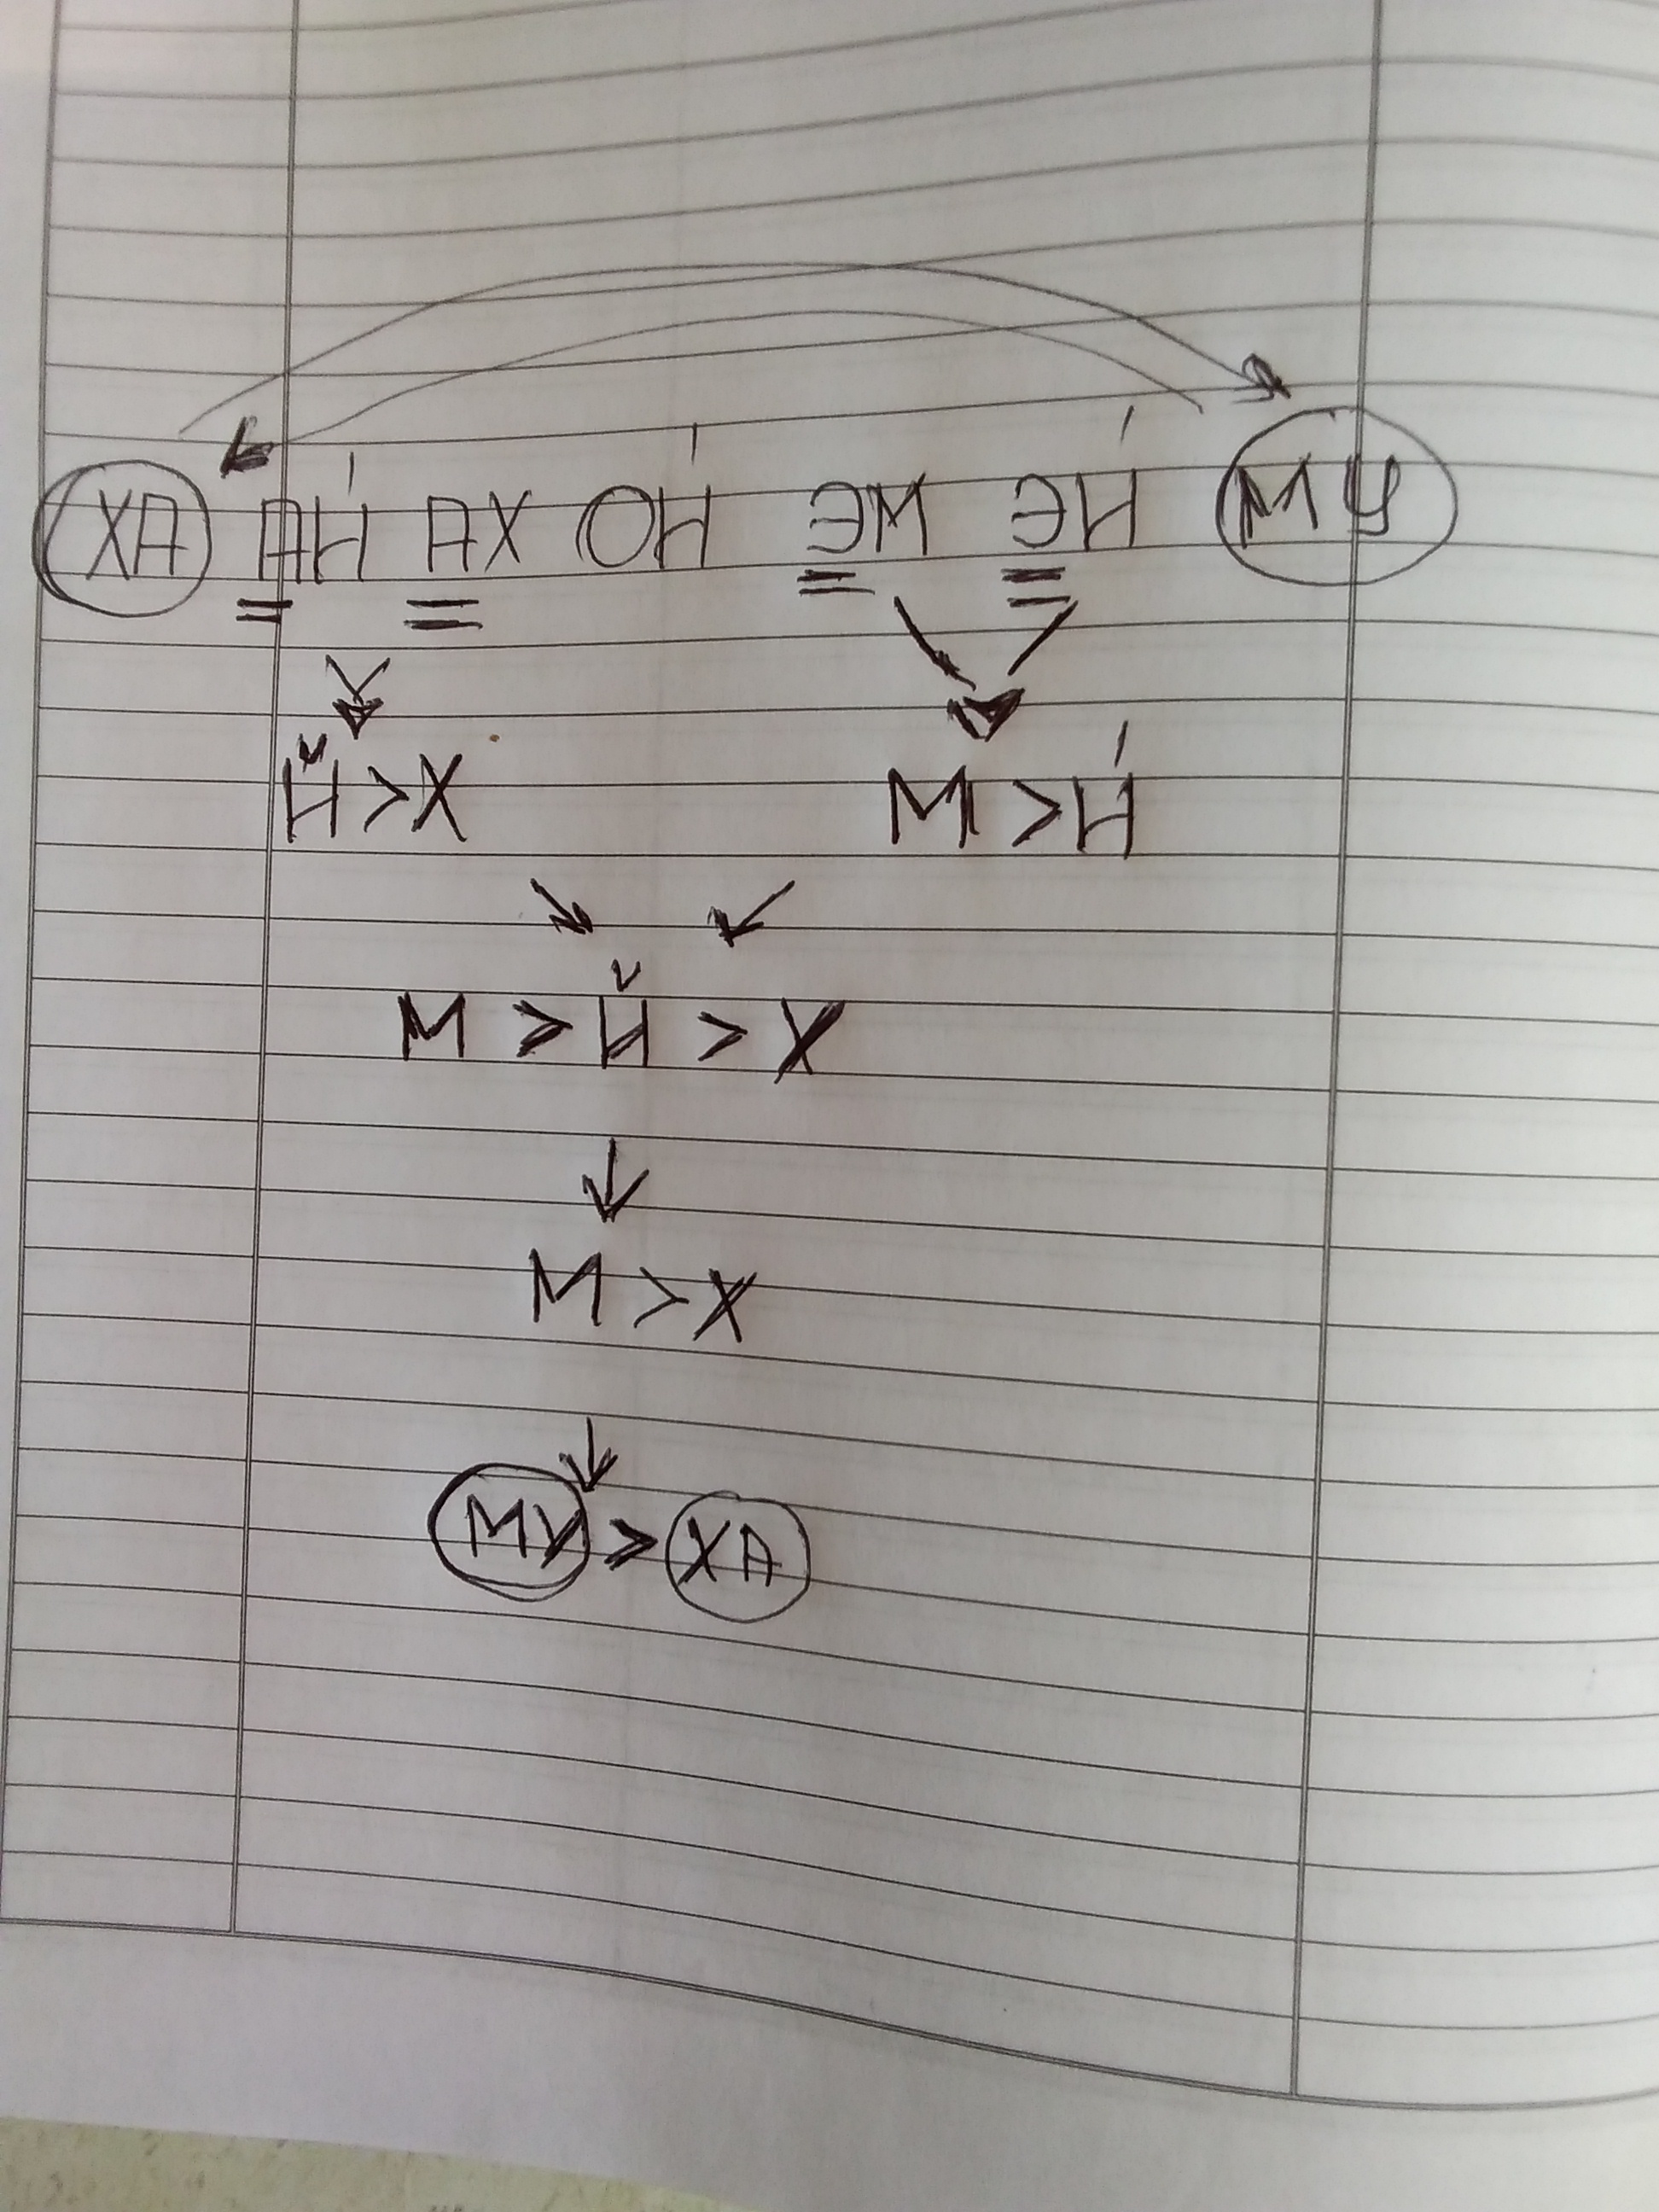 ХА АЙ АХ ОЙ ЭМ ЭЙ МУ
Й>Х М>Й
М > Й > Х
М > Х
МУ > ХА